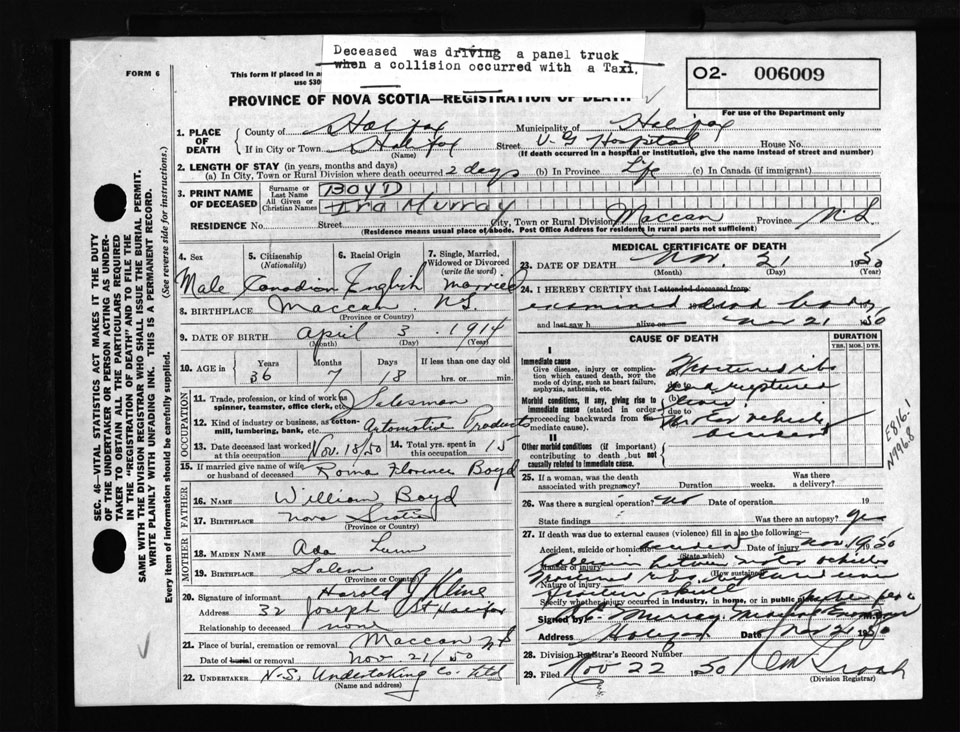 Deceased was driving a panel truck
when a collision occurred with a Taxi.
FORM 6
This form if placed in a
use $30
O2- 006009
For use of the Department only
PROVINCE OF NOVA SCOTIA—REGISTRATION OF DEATH
SEC. 46—VITAL STATISTICS ACT MAKES IT THE DUTY
OF THE UNDERTAKER OR PERSON ACTING AS UNDER-
TAKER TO OBTAIN ALL THE PARTICULARS REQUIRED
IN THE "REGISTRATION OF DEATH" AND TO FILE THE
SAME WITH THE DIVISION REGISTRAR WHO SHALL ISSUE THE BURIAL PERMIT.
WRITE PLAINLY WITH UNFADING INK. THIS IS A PERMANENT RECORD.
Every item of information should be carefully supplied. (See reverse side for instructions.)
1. PLACE OF DEATH
County of Halifax Municipality of Halifax
If in City or Town Halifax Street V. G Hospital House No.
(Name) (If death occurred in a hospital or institution, give the name instead of street and number)
2. LENGTH OF STAY (in years, months and days)
(a) In City, Town or Rural Division where death occurred 2 days (b) In Province Life (c) In Canada (if immigrant)
3. PRINT NAME OF DECEASED
Surname or Last Name BOYD
All Given or Christian Names Ira Murray
RESIDENCE No. Street City, Town or Rural Division Maccan Province N.S
(Residence means usual place of abode. Post Office Address for residents in rural parts not sufficient)
4. Sex 5. Citizenship (Nationality) 6. Racial Origin 7. Single, Married, Widowed or Divorced (write the word)
Male Canadian English married
8. BIRTHPLACE Maccan N.S.
(Province or Country)
9. DATE OF BIRTH April 3 1914
(Month) (Day) (Year)
10. AGE in Years Months Days If less than one day old
36 7 18 hrs. or min.
OCCUPATION
11. Trade, profession, or kind of work as spinner, teamster, office clerk, etc. Salesman
12. Kind of industry or business, as cotton-mill, lumbering, bank, etc. Automotive Products
13. Date deceased last worked at this occupation Nov. 18/50 14. Total yrs. spent in this occupation 15
15. If married give name of wife or husband of deceased Roma Florence Boyd
FATHER
16. NAME William Boyd
17. BIRTHPLACE Nova Scotia
(Province or Country)
MOTHER
18. MAIDEN NAME Ada Lunn
19. BIRTHPLACE Salem
(Province or Country)
20. Signature of informant Harold J Kline
Address 32 Joseph St Halifax
Relationship to deceased none
21. Place of burial, cremation or removal Maccan N S
Date of burial or removal Nov 21/50
22. UNDERTAKER N.S. Undertaking Co. Ltd
(Name and address)
MEDICAL CERTIFICATE OF DEATH
23. DATE OF DEATH Nov. 21 1950
(Month) (Day) (Year)
24. I HEREBY CERTIFY that I attended deceased from
examined dead body
and last saw h alive on Nov 21 1950
CAUSE OF DEATH
DURATION
YRS. MOS. DYS.
I
Immediate cause
Give disease, injury or complication which caused death, NOT the mode of dying, such as heart failure, asphyxia, asthenia, etc.
(a) Fractured ribs
ruptured
Morbid conditions, if any, giving rise to immediate cause (stated in order proceeding backwards from immediate cause).
(b) due to liver
Motor vehicle
accident
II
Other morbid conditions (if important) contributing to death but not causally related to immediate cause.
E816.1
N996.8
25. If a woman, was the death associated with pregnancy? Duration weeks. Was there a delivery?
26. Was there a surgical operation? no Date of operation 19
State findings Was there an autopsy? yes
27. If death was due to external causes (violence) fill in also the following:
Accident, suicide or homicide accident Date of injury Nov 19 1950
(State which)
Manner of injury between motor vehicles
(How sustained)
Nature of injury Fractured ribs, ruptured liver
fracture skull
Specify whether injury occurred in industry, in home, or in public place
Signed by Murray
Address Halifax Date Nov 21 1950
28. Division Registrar's Record Number
29. Filed Nov 22 1950
(Division Registrar)